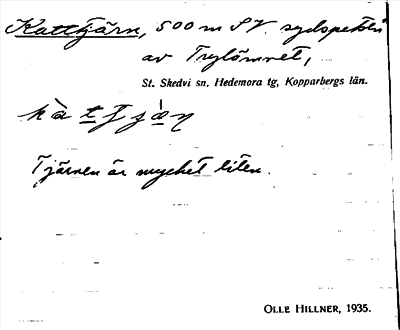 Katttjärn, 500 m SV. sydspetsen
av Trylömnet,
St. Skedvi sn, Hedemora tg, Kopparbergs län.
Tjärnen är mycket liten.
OLLE HILLNER, 1935.